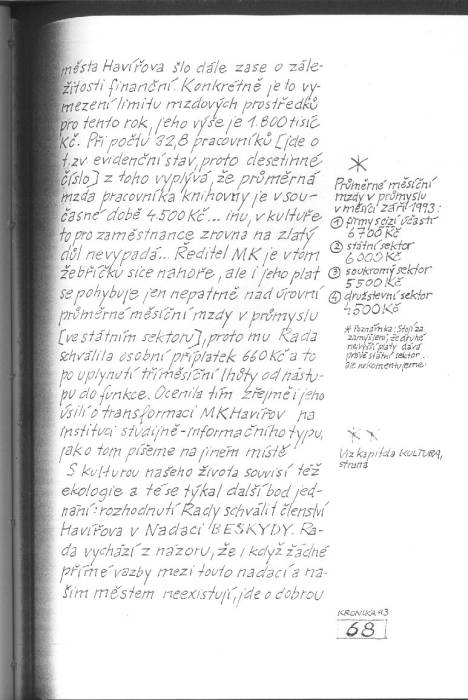 města Havířova šlo dále zase o zále-
žitosti finanční. Konkrétně je to vy-
mezení limitu mzdových prostředků
pro tento rok, jeho výše je 1.800 tisíc
Kč. Při počtu 32,8 pracovníků [jde o
t.zv evidenční stav, proto desetinné
číslo] z toho vyplývá, že průměrná
mzda pracovníka knihovny je v sou-
časné době 4.500 Kč... inu, v kultuře
to pro zaměstnance zrovna na zlatý
důl nevypadá... Ředitel MK je v tom
žebříčku sice nahoře, ale i jeho plat
se pohybuje jen nepatrně nad úrovní
průměrné měsíční mzdy v průmyslu
[ve státním sektoru], proto mu Rada
schválila osobní příplatek 660 Kč a to
po uplynutí tříměsíční lhůty od nástu-
pu do funkce. Ocenila tím zřejmě i jeho
úsilí o transformaci MK Havířov na
instituci studijně-informačního typu,
jak o tom píšeme na jiném místě
S kulturou našeho života souvisí též
ekologie a té se týkal další bod jed-
nání: rozhodnutí Rady schválit členství
Havířova v Nadaci BESKYDY. Ra-
da vychází z názoru, že i když žádné
přímé vazby mezi touto nadací a na-
ším městem neexistují, jde o dobrou
*
Průměrné měsíční
mzdy v průmyslu
v měsíci září 1993:
① firmy s cizí účastí
6700 Kč
② státní sektor
6000 Kč
③ soukromý sektor
5500 Kč
④ družstevní sektor
4500 Kč
* Poznámka: Stojí za
zamyšlení, že druhé
největší platy dává
právě státní sektor...
ale nekomentujeme
* *
Viz kapitola KULTURA,
strana
KRONIKA 93
68